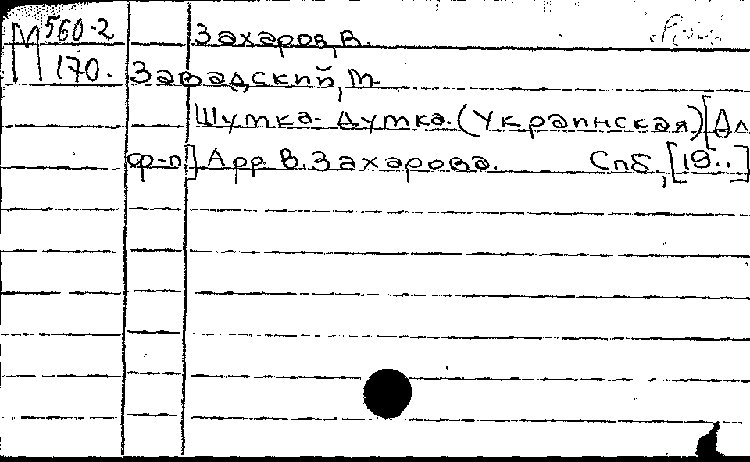 М 560-2 Захаров, В.
170. Завадский, М
Шутка-Думка. (Украинская) [Дл
ф-п] Арр. В. Захарова. Спб, [19..]